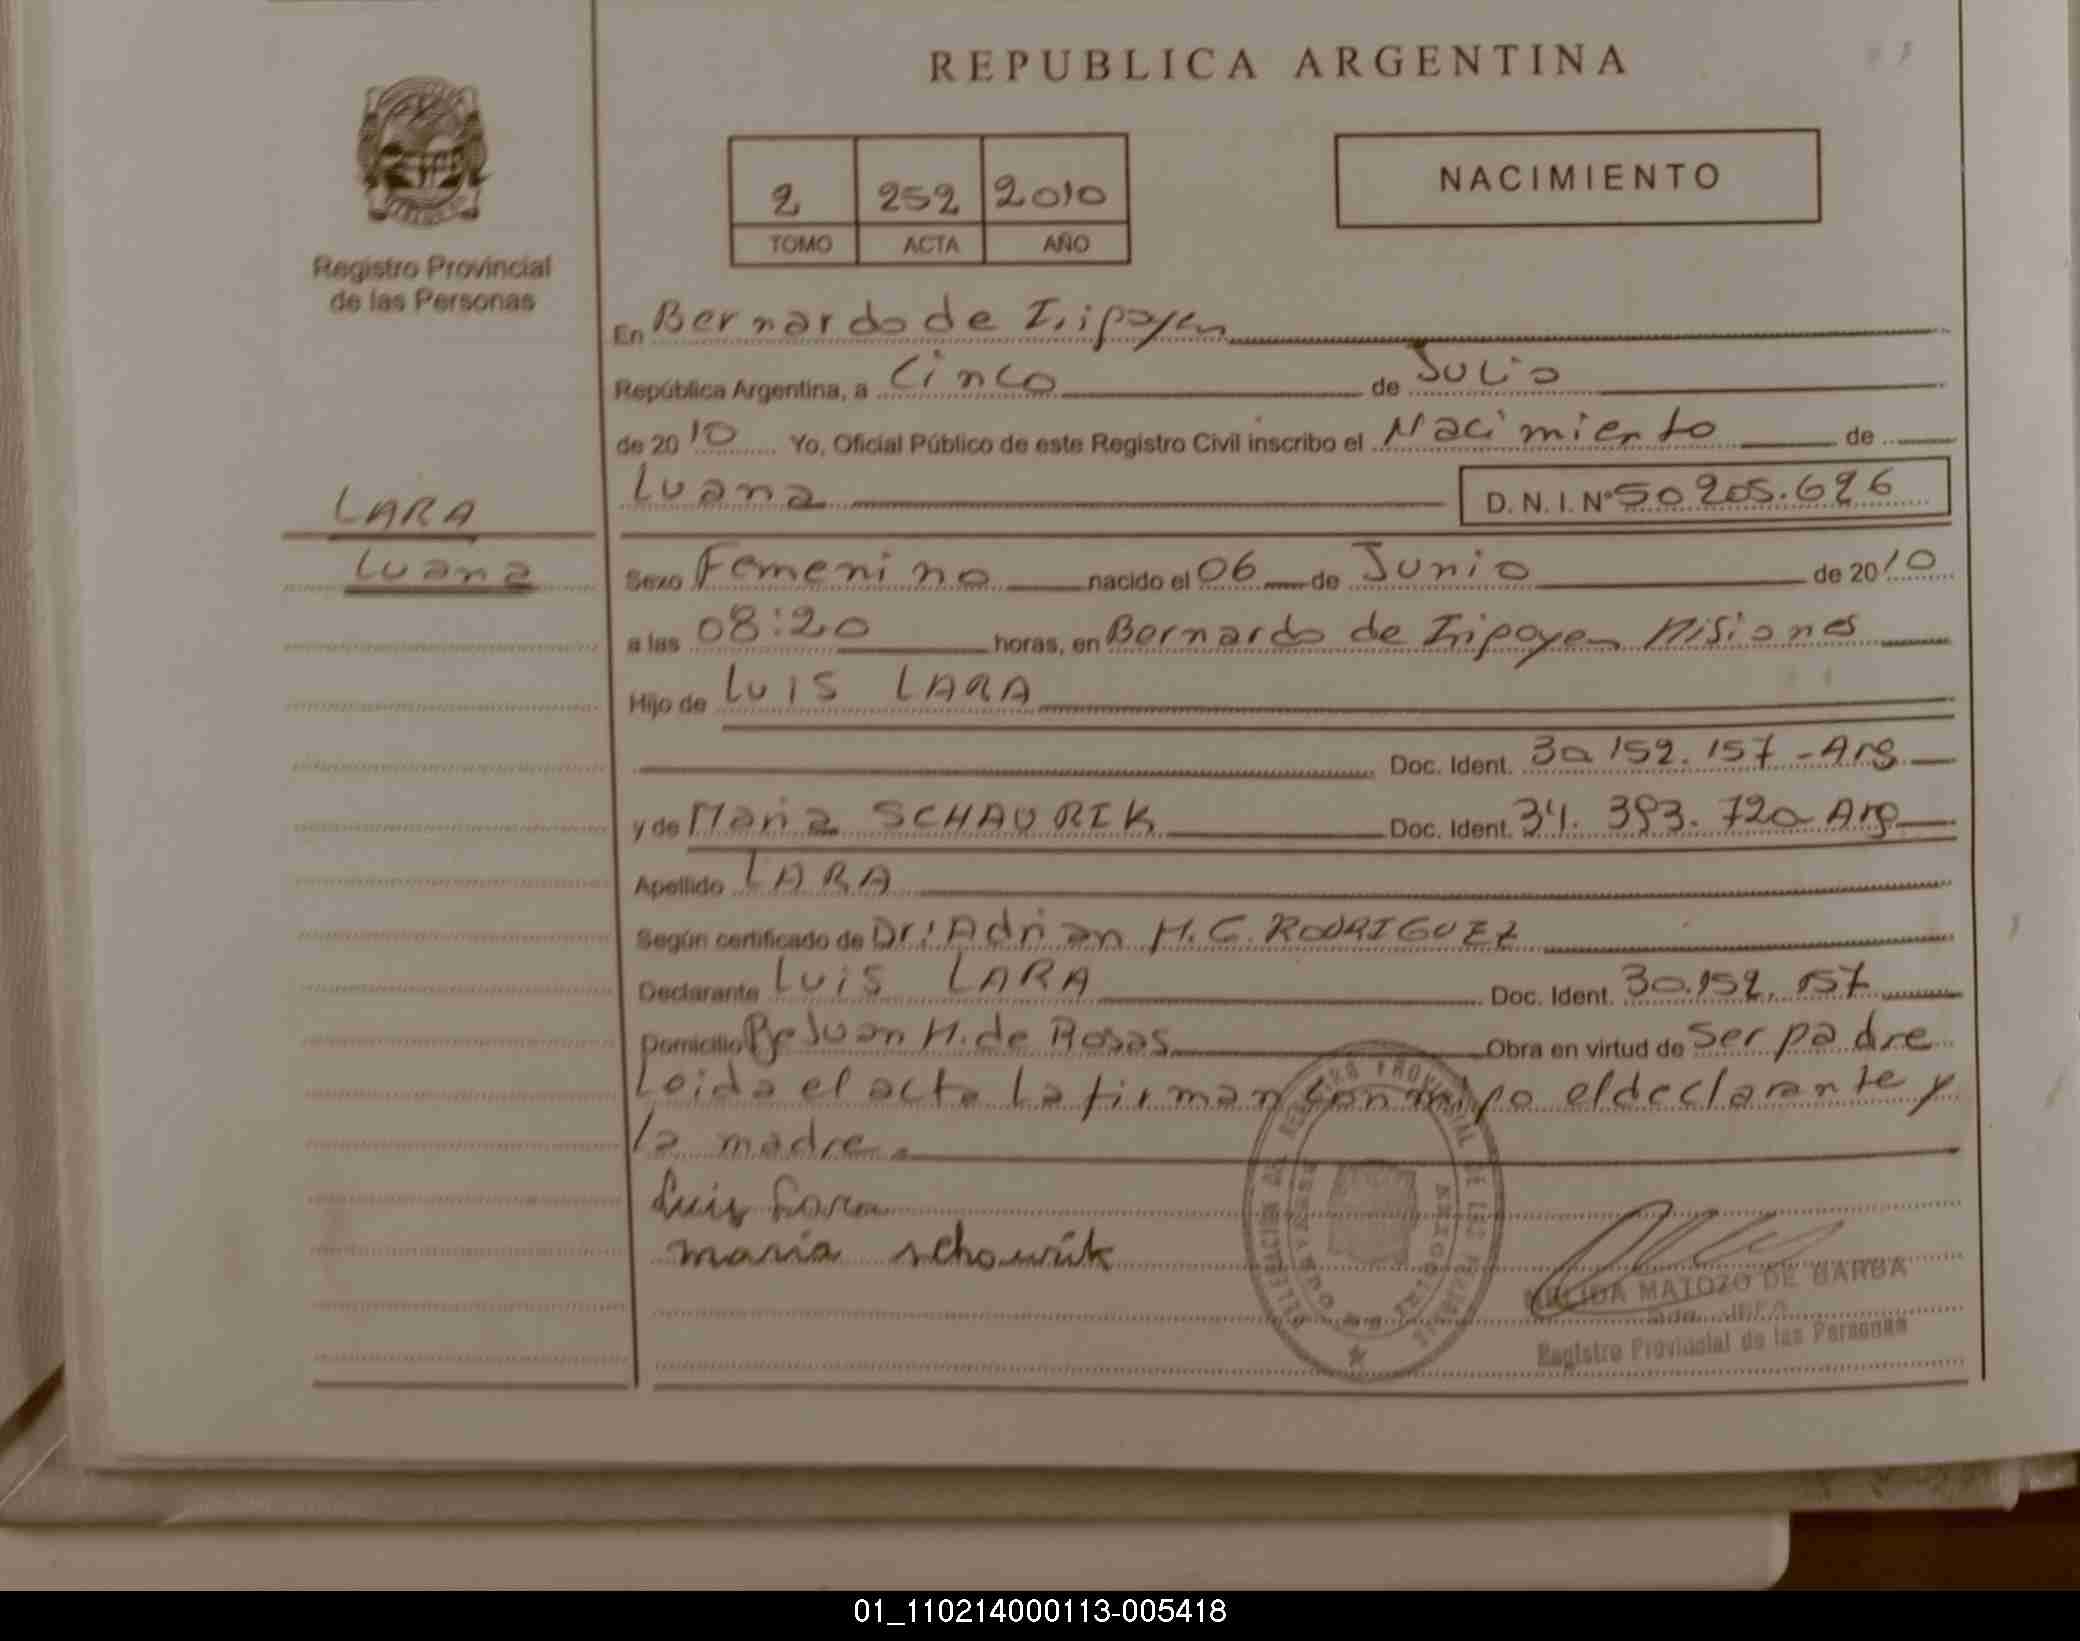 REPUBLICA ARGENTINA
2 252 2010
TOMO ACTA AÑO
NACIMIENTO
Registro Provincial
de las Personas
LARA
Luana
En Bernardo de Irigoyen
República Argentina, a Cinco de Julio
de 2010 Yo, Oficial Público de este Registro Civil inscribo el Nacimiento de
Luana D. N. I. Nº 50205.626
Sexo Femenino nacido el 06 de Junio de 2010
a las 08:20 horas, en Bernardo de Irigoyen Misiones
Hijo de Luis LARA
Doc. Ident. 30.152.157-Arg
y de Maria SCHAURIK Doc. Ident. 34.393.720 Arg
Apellido LARA
Según certificado de Dr: Adrian H. C. RODRIGUEZ
Declarante Luis LARA Doc. Ident. 30.152.157
Domicilio Juan M. de Rosas Obra en virtud de ser padre
Leida el acta la firman conmigo el declarante y
la madre.
Luis Lara
maria schaurik
DELEGACION DEL REGISTRO PROVINCIAL DE LAS PERSONAS
MATOZO DE BARBA
Registro Provincial de las Personas
01_110214000113-005418